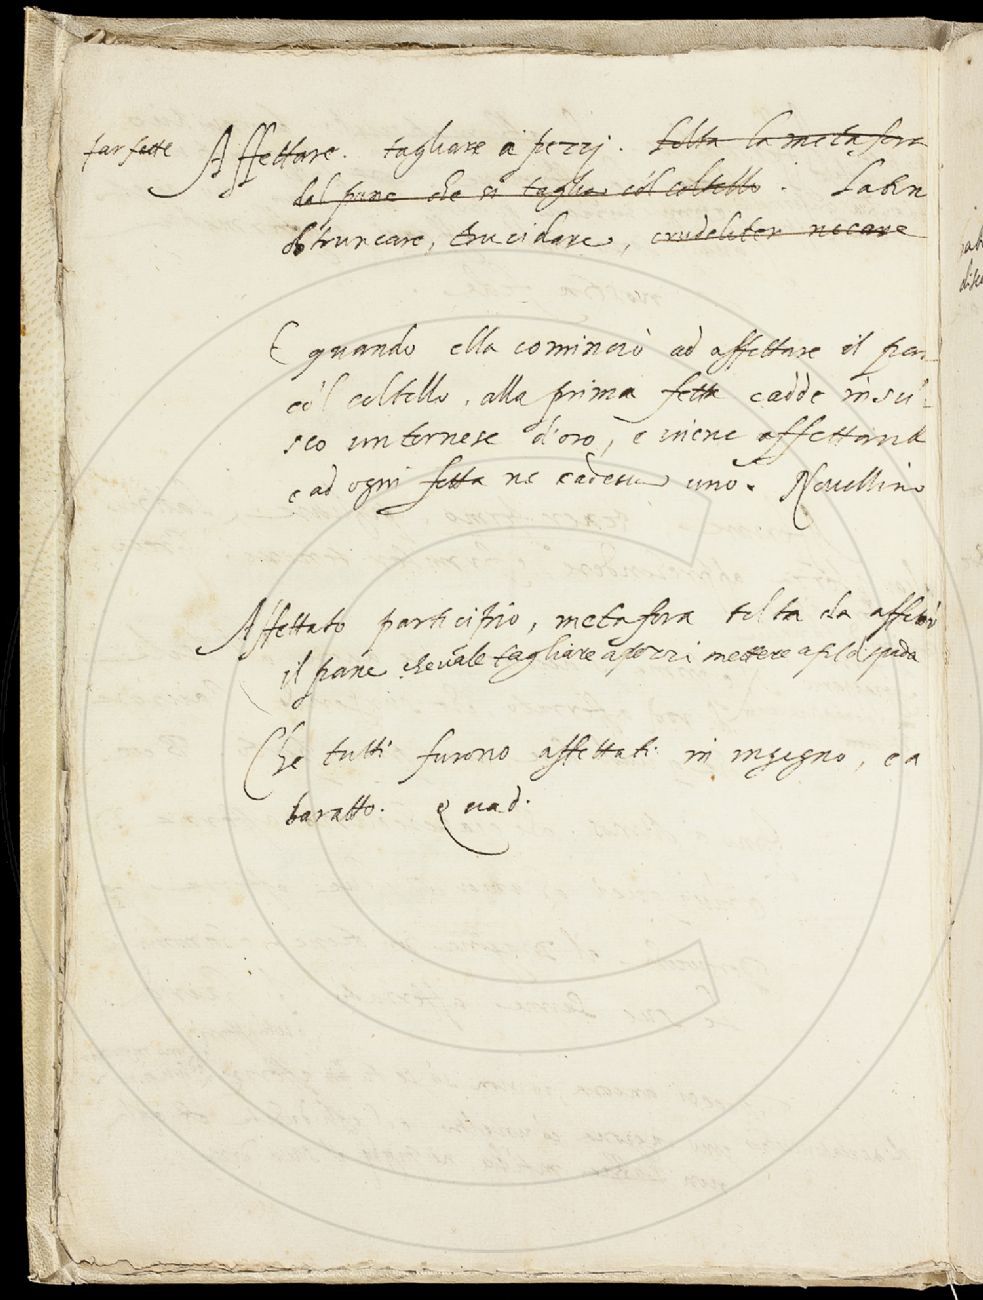 far fette
Affettare. tagliare a pezzi. tolta la metafora
dal pane che si taglia col coltello. Latin
obtruncare, trucidare, crudeliter necare
E quando ella cominciò ad affettare il pan
col coltello, alla prima fetta cadde in sul
un tornese d'oro, e viene affettand
e ad ogni fetta ne cadeva uno. Novellino
Affettato participio, metafora tolta da affettar
il pane che vale tagliare a pezzi mettere a fil di spada
Che tutti furono affettati in ingegno, e a
baratto. Quad.